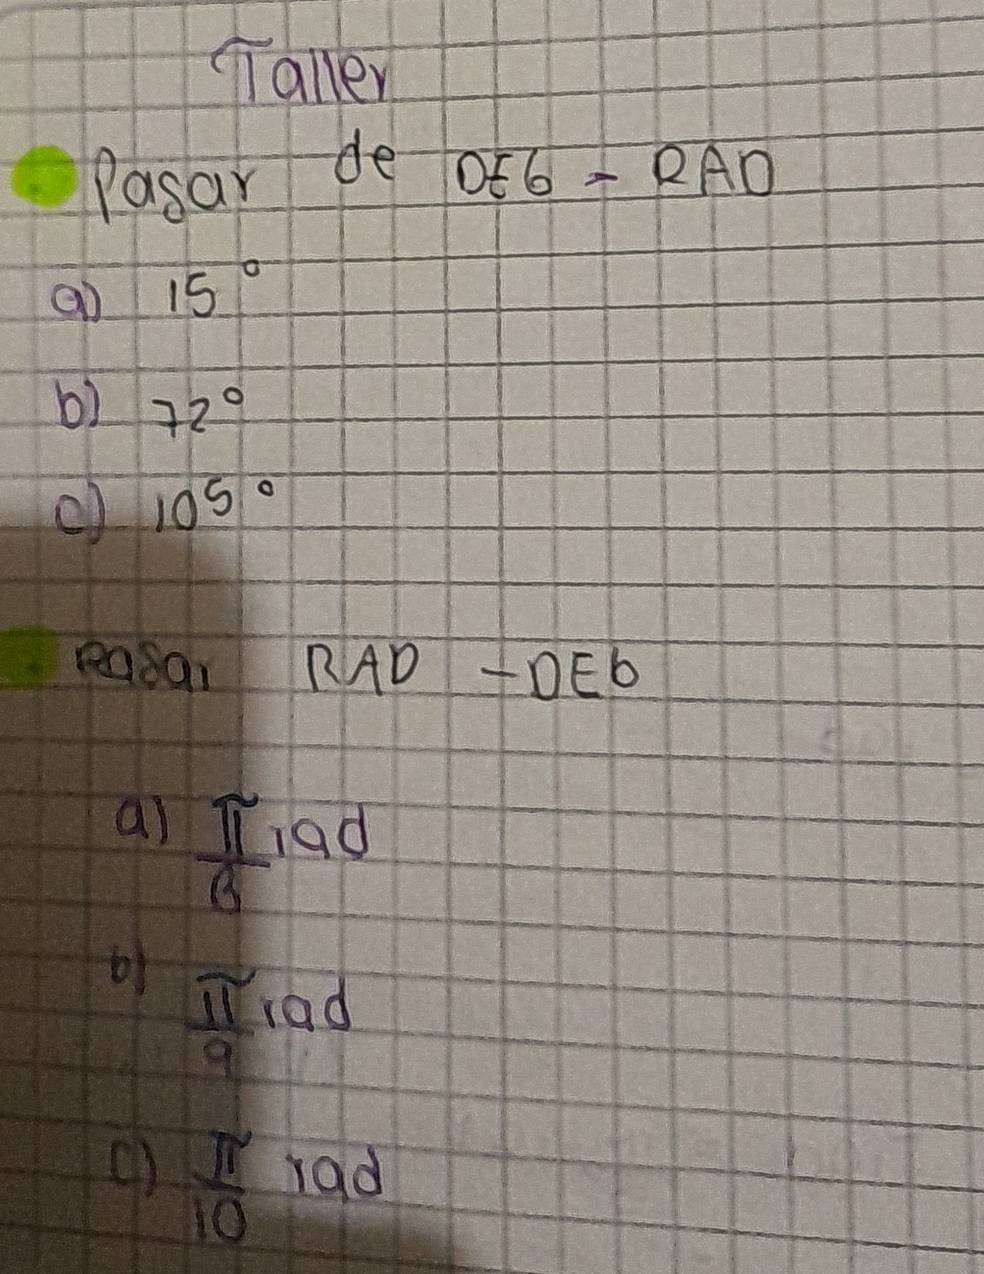 Taller
Pasar de DEG - RAD
a) 15°
b) 72°
c) 105°
Pasar RAD - DEG
a) π/8 rad
b) π/9 rad
c) π/10 rad